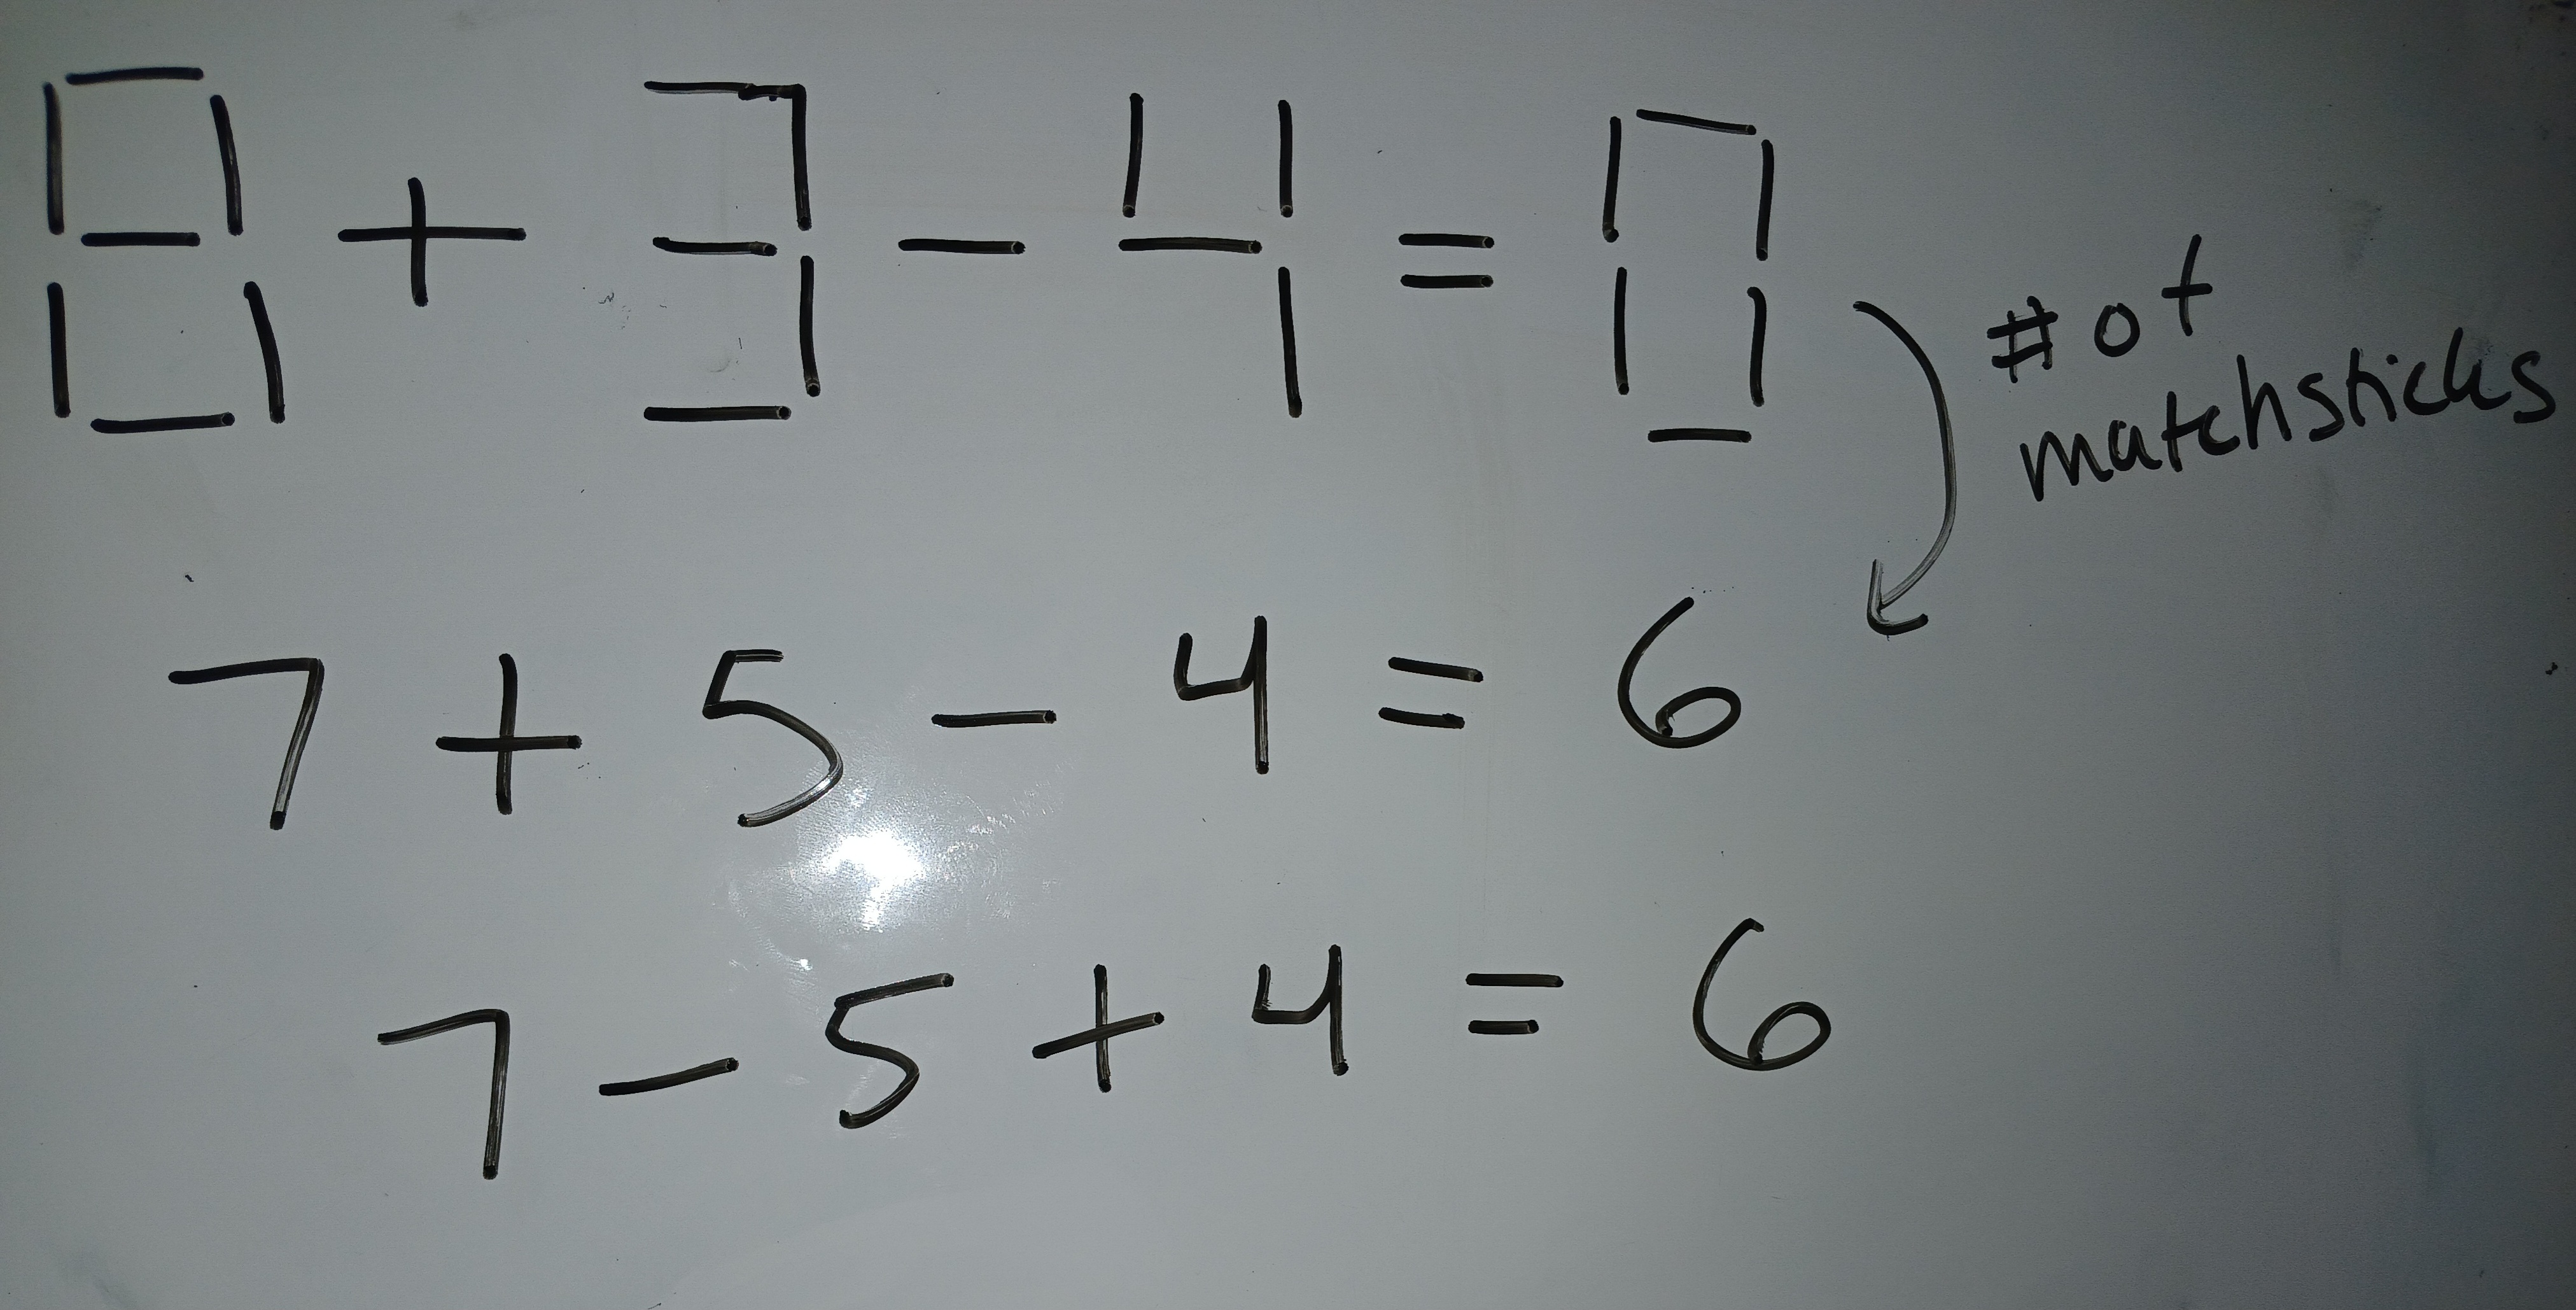 8 + 3 - 4 = 0
# of
matchsticks
7 + 5 - 4 = 6
7 - 5 + 4 = 6